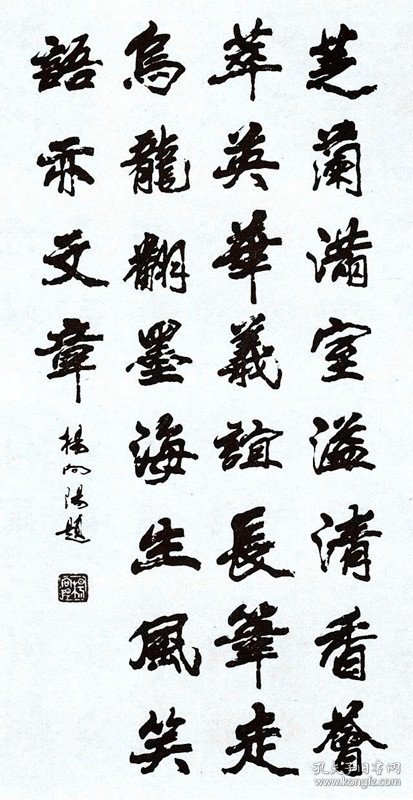 芝蘭滿室溢清香薈
萃英華義誼長筆走
烏龍翻墨海生風笑
語亦文章
楊向陽題
孔夫子旧书网
kongfz.com